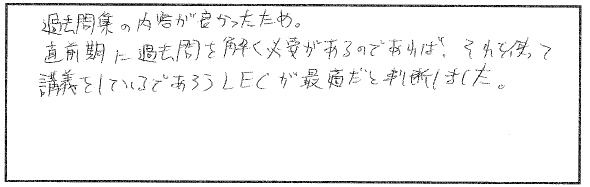 過去問集の内容が良かったため。
直前期に過去問を解く必要があるのであれば、それを使って
講義をしているであろうLECが最適だと判断しました。